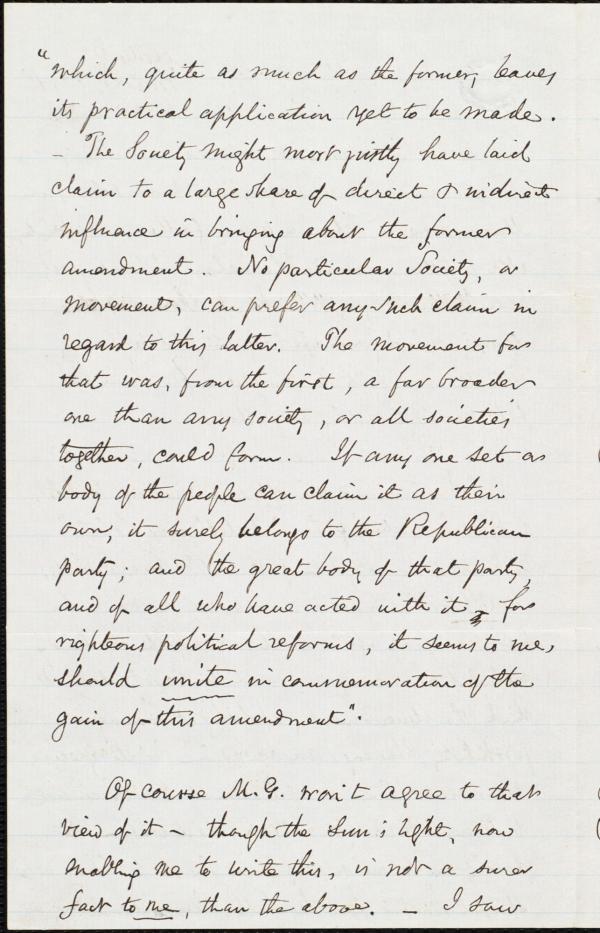 "which, quite as much as the former, leaves
its practical application yet to be made.
– The Society might most justly have laid
claim to a large share of direct & indirect
influence in bringing about the former
amendment. No particular Society, or
movement, can prefer any such claim in
regard to this latter. The movement for
that was, from the first, a far broader
one than any society, or all societies
together, could form. If any one set or
body of the people can claim it as their
own, it surely belongs to the Republican
party; and the great body of that party,
and of all who have acted with it for
righteous political reforms, it seems to me,
should unite in commemoration of the
gain of this amendment".
Of course M.G. won't agree to that
view of it – though the Sun's light, now
enabling me to write this, is not a surer
fact to me, than the above. – I saw